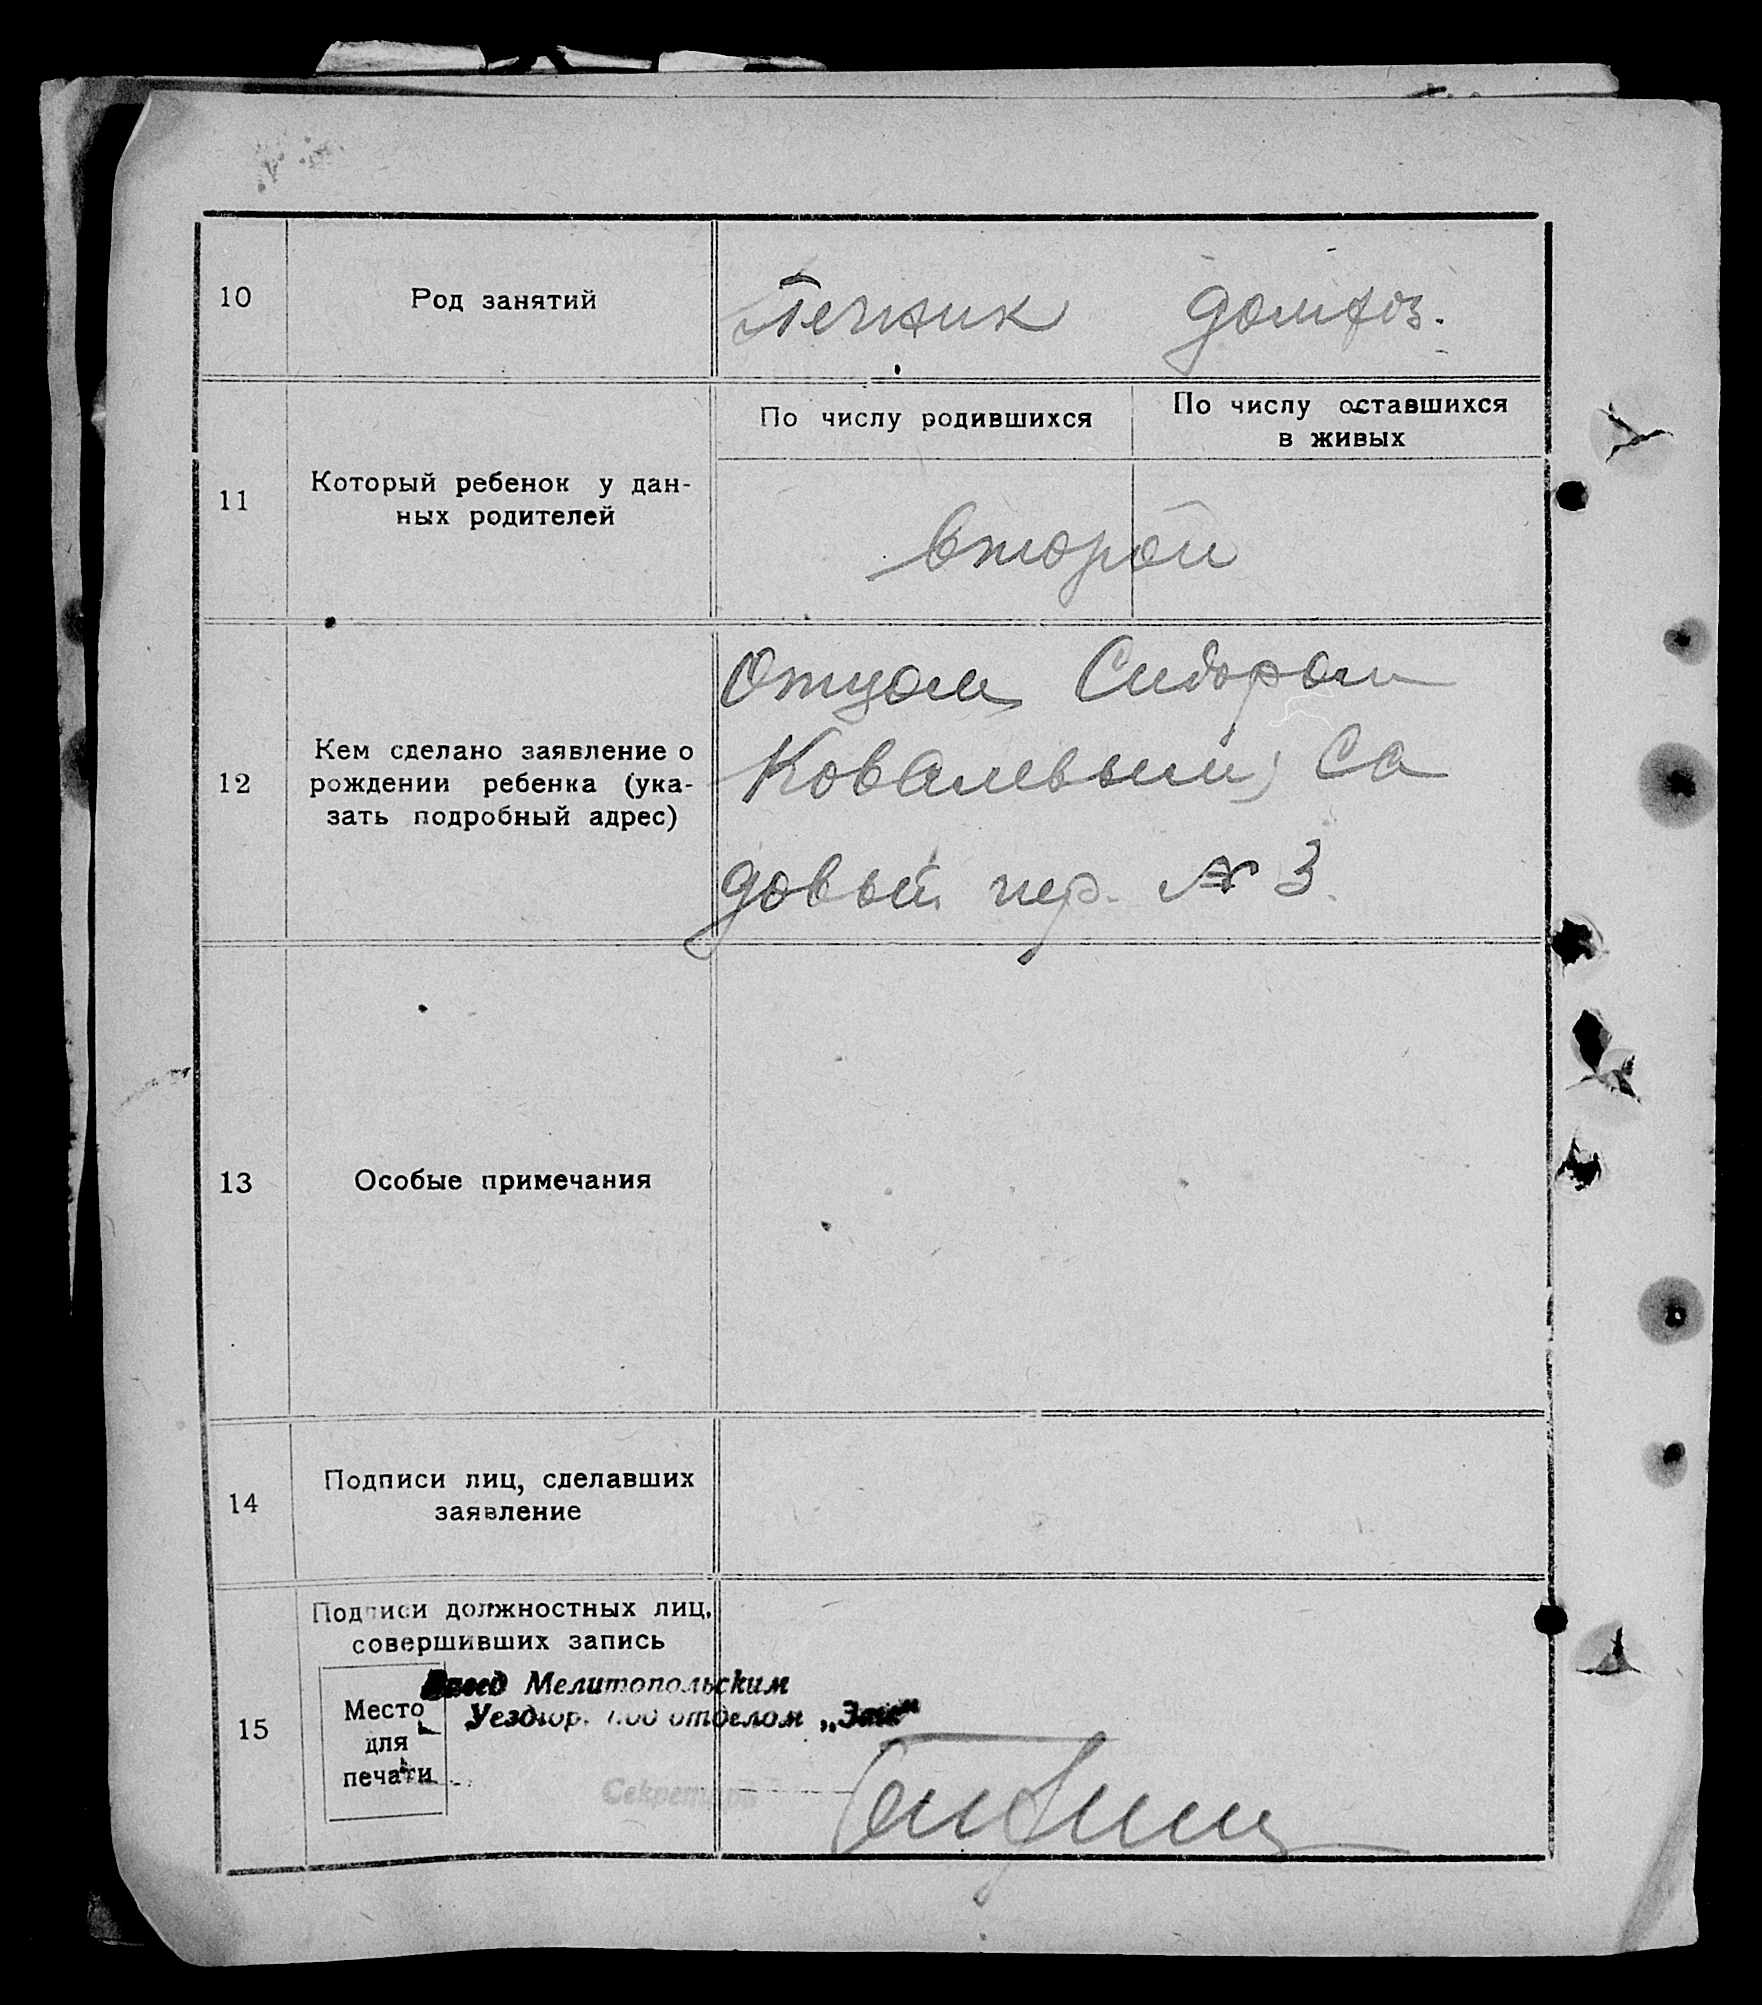 10 Род занятий Печник домхоз.
По числу родившихся По числу оставшихся
в живых
11 Который ребенок у дан-
ных родителей
второй
Отцом Сидором
Ковалевым, Са
довый пер. № 3.
12 Кем сделано заявление о
рождении ребенка (ука-
зать подробный адрес)
13 Особые примечания
14 Подписи лиц, сделавших
заявление
Подписи должностных лиц,
совершивших запись
15
Место
для
печати
Завед Мелитопольским
Уездгор. под отделом „Загс"
Секретарь